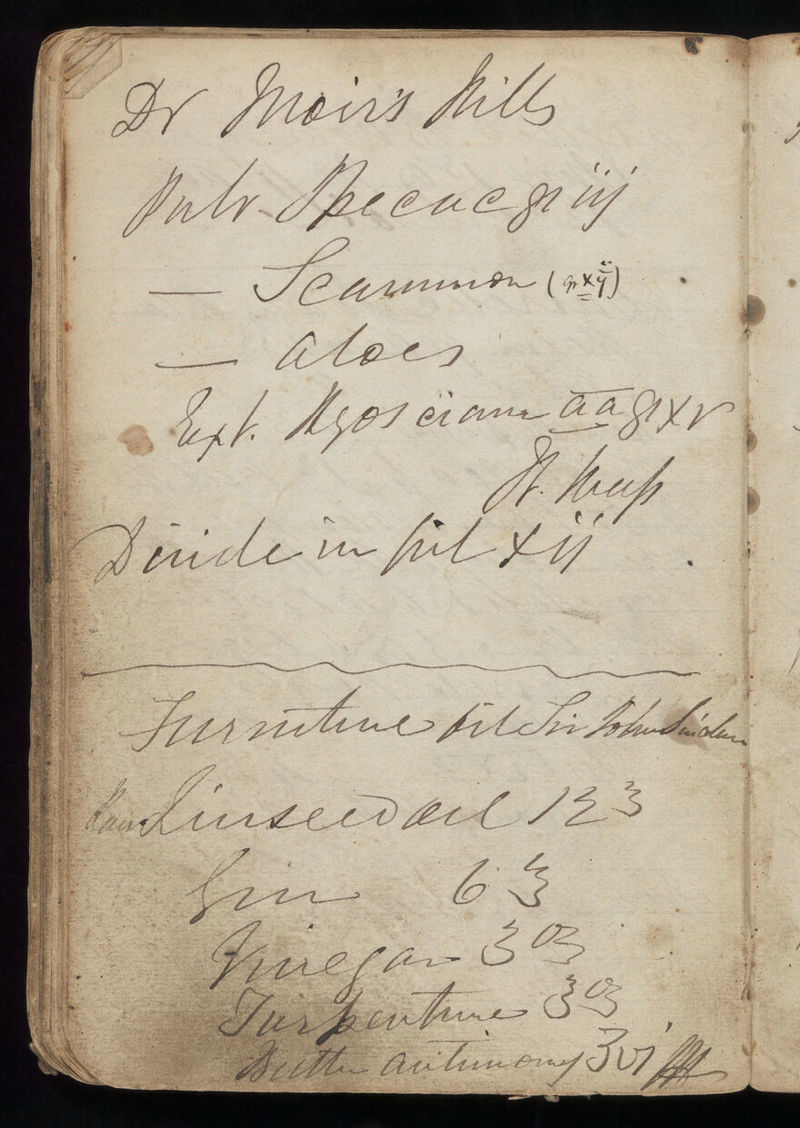 Dr Moir's Pills
Pulv. Ipecac gr iij
— Scammon (gr xij)
— Aloes
Ext. Hyosciam aa gr xv
Divide in pil xij
Furniture oil Sir John
Raw Linseed oil 12 ℥
Gin 6 ℥
Vinegar 3 oz
Turpentine 3 oz
Butter antimony ʒvi